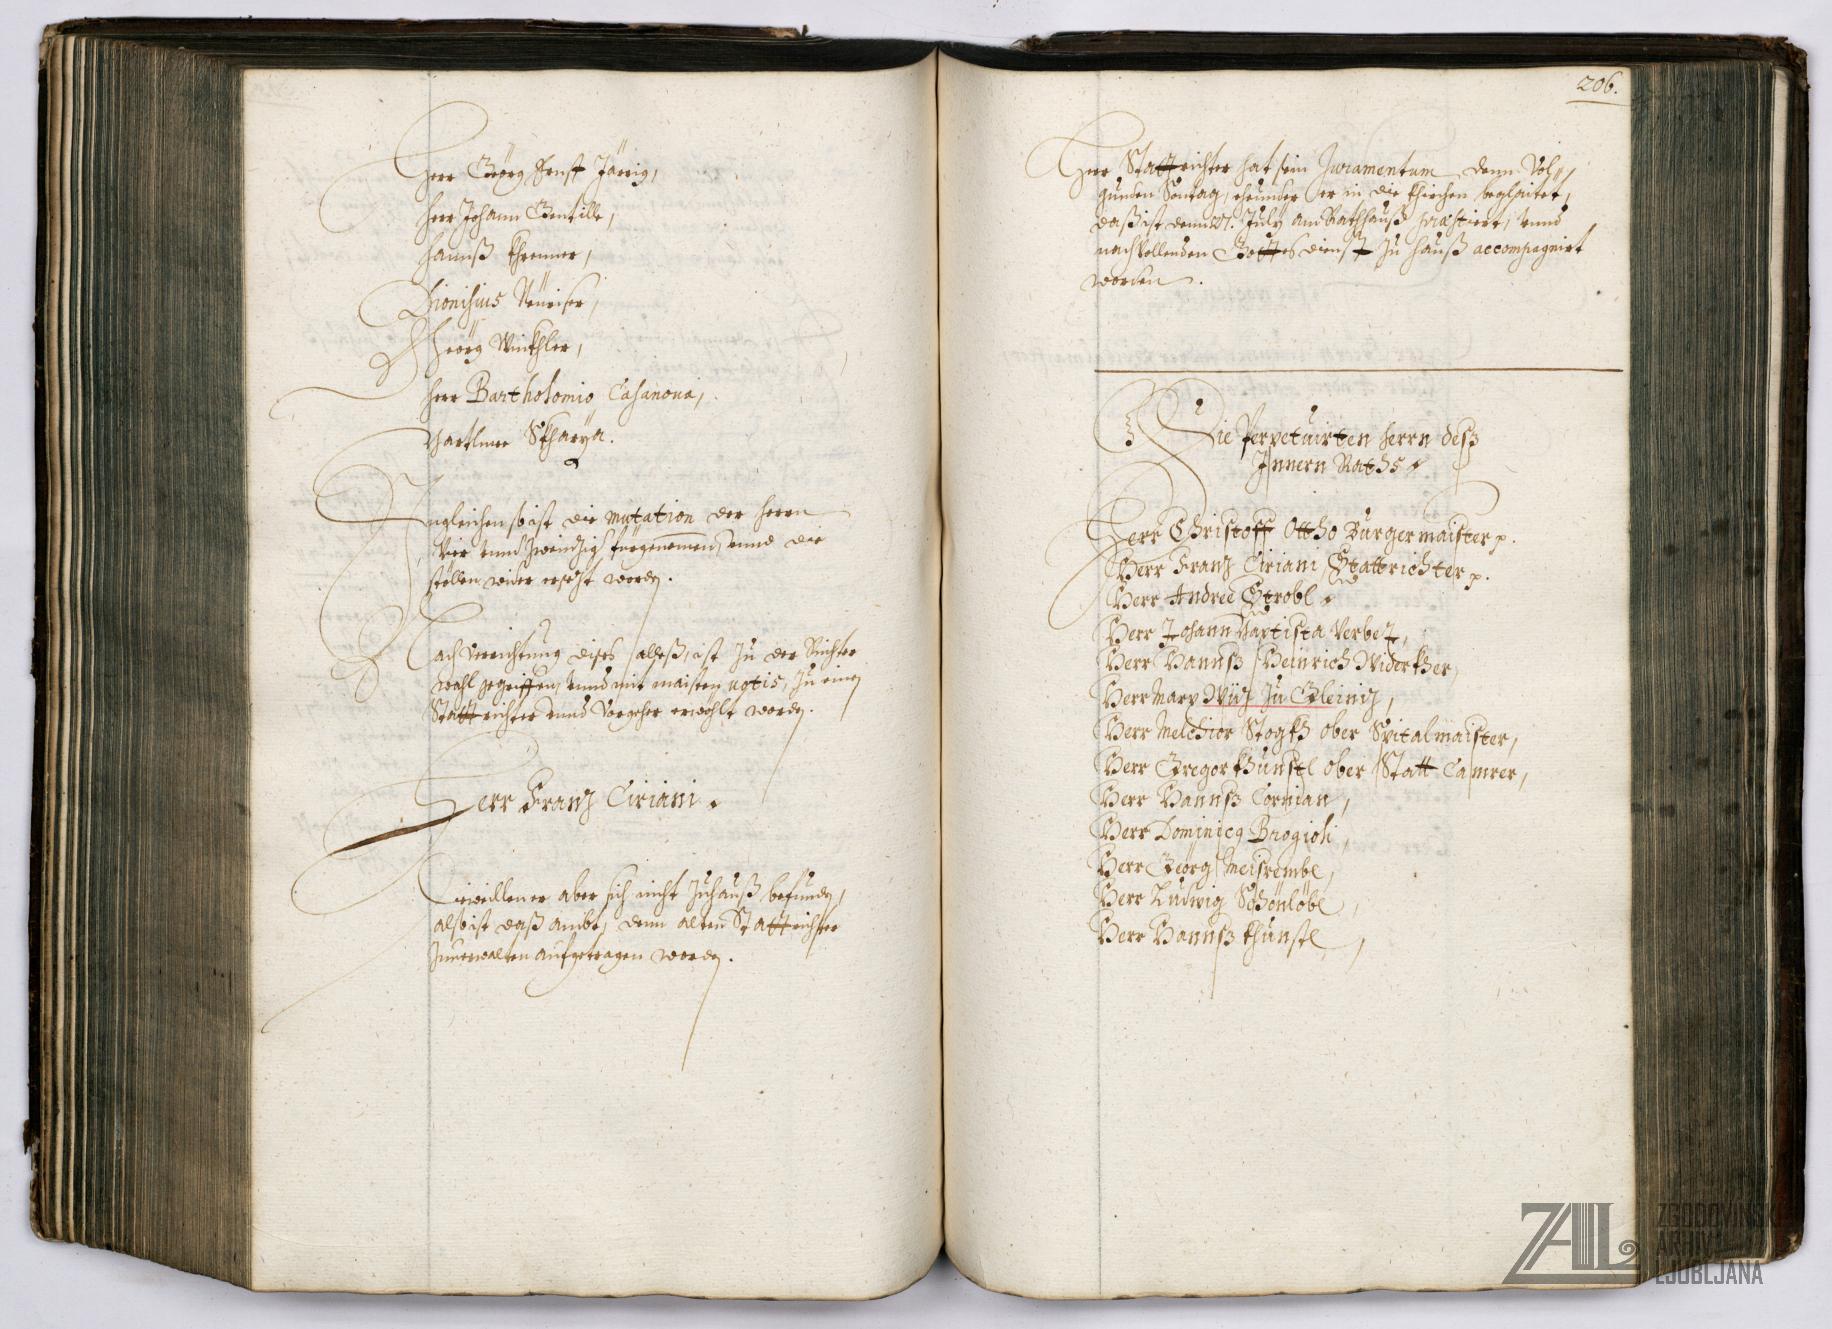 Herr Georg Ernst Järrig,
herr Johann Gentille,
hannß Khremer,
Dionisius
Georg Winkhler,
herr Bartholomio Casanova,
Bartlmee Skharya.
Ingleichen so ist die mutation der herrn
Vier unnd Zwainzig fürgenomen, unnd die
stöllen wider ersezt worden.
Nach verrichtung dises alles, ist zu der Richter
wahl gegriffen, unnd mit maisten votis, zu einen
Stattrichter unnd Vorgeher erwöhlt worden.
Herr Franz Ciriani.
Dieweillen er aber sich nicht zuhauß befunden,
also ist daß ambt, dem alten Stattrichter
zuverwalten aufgetragen worden.
206.
Herr Stattrichter hat sein Juramentum denn Vol-
gunden Sontag, er in die Khirchen beglaitet,
daß ist denn 27. July am Rathhauß praestiert, unnd
nach vollenden Gottes dienst zu hauß accompagnirt
worden.
Die Perpetuirten herrn deß
Innern Raths
Herr Christoff Ottho Burgermaister p.
Herr Franz Ciriani Stattrichter p.
Herr Andree Strobl
Herr Johann Baptista Verbez,
Herr Hannß Heinrich Widerkher,
Herr Marx Wiz zu Gleiniz,
Herr Melchior Stogkh ober Spitalmaister,
Herr Gregor Khunstl ober Statt Camrer,
Herr Hannß Cornian,
Herr Dominico Brogioli,
Herr Georg
Herr Ludwig Schönlöbl,
Herr Hannß Khunstl,
ZAL
ZGODOVINSKI
ARHIV
LJUBLJANA